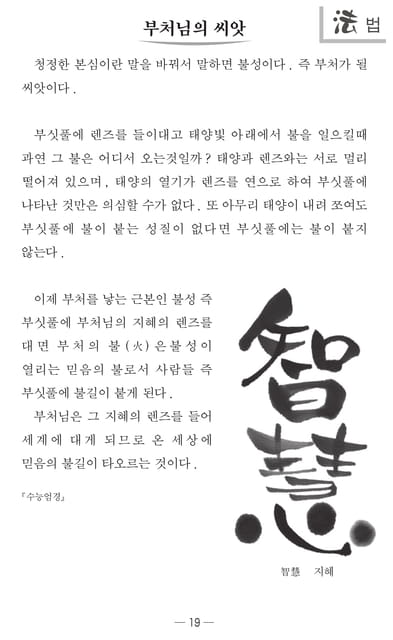 부처님의 씨앗
法 법
청정한 본심이란 말을 바꿔서 말하면 불성이다. 즉 부처가 될
씨앗이다.
부싯풀에 렌즈를 들이대고 태양빛 아래에서 불을 일으킬때
과연 그 불은 어디서 오는것일까? 태양과 렌즈와는 서로 멀리
떨어져 있으며, 태양의 열기가 렌즈를 연으로 하여 부싯풀에
나타난 것만은 의심할 수가 없다. 또 아무리 태양이 내려 쪼여도
부싯풀에 불이 붙는 성질이 없다면 부싯풀에는 불이 붙지
않는다.
이제 부처를 낳는 근본인 불성 즉
부싯풀에 부처님의 지혜의 렌즈를
대면 부처의 불(火)은 불성이
열리는 믿음의 불로서 사람들 즉
부싯풀에 불길이 붙게 된다.
부처님은 그 지혜의 렌즈를 들어
세계에 대게 되므로 온 세상에
믿음의 불길이 타오르는 것이다.
『수능엄경』
智慧
智慧 지혜
— 19 —